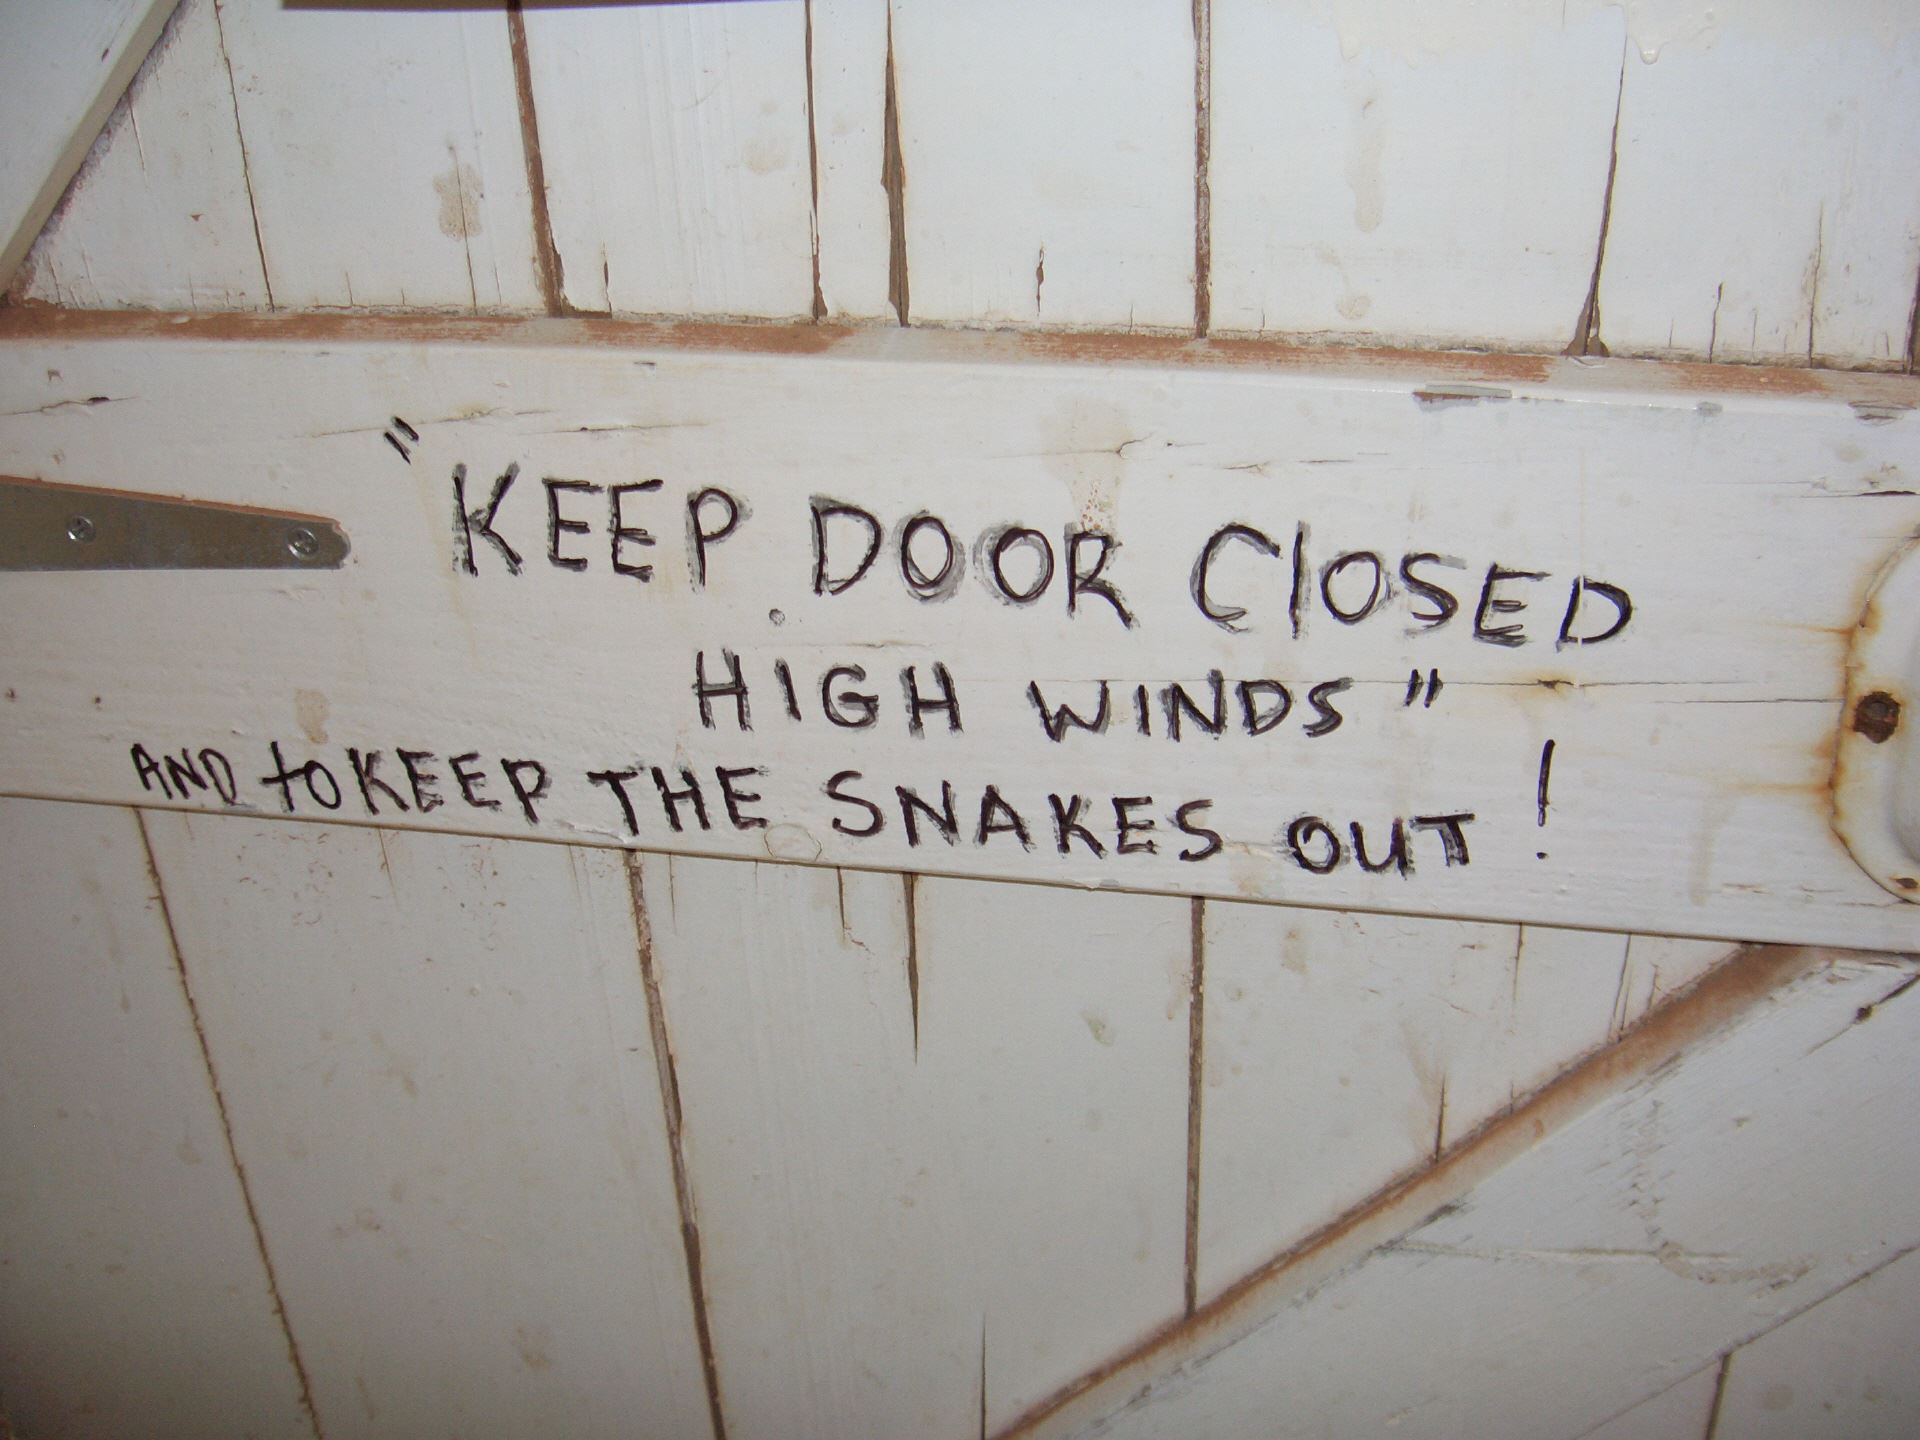 "KEEP DOOR ClOSED
HIGH WINDS"
AND to KEEP THE SNAKES OUT!